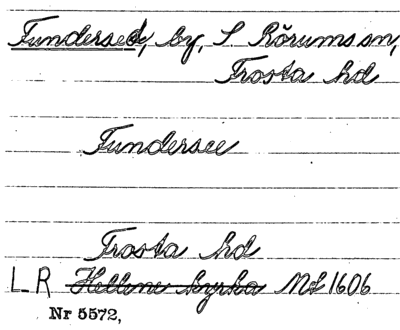 Fundersed, by, S Rörums sn,
Frosta hd
Fundersee
Frosta hd
L R Hellone kyrka Ms 1606
Nr 5572,